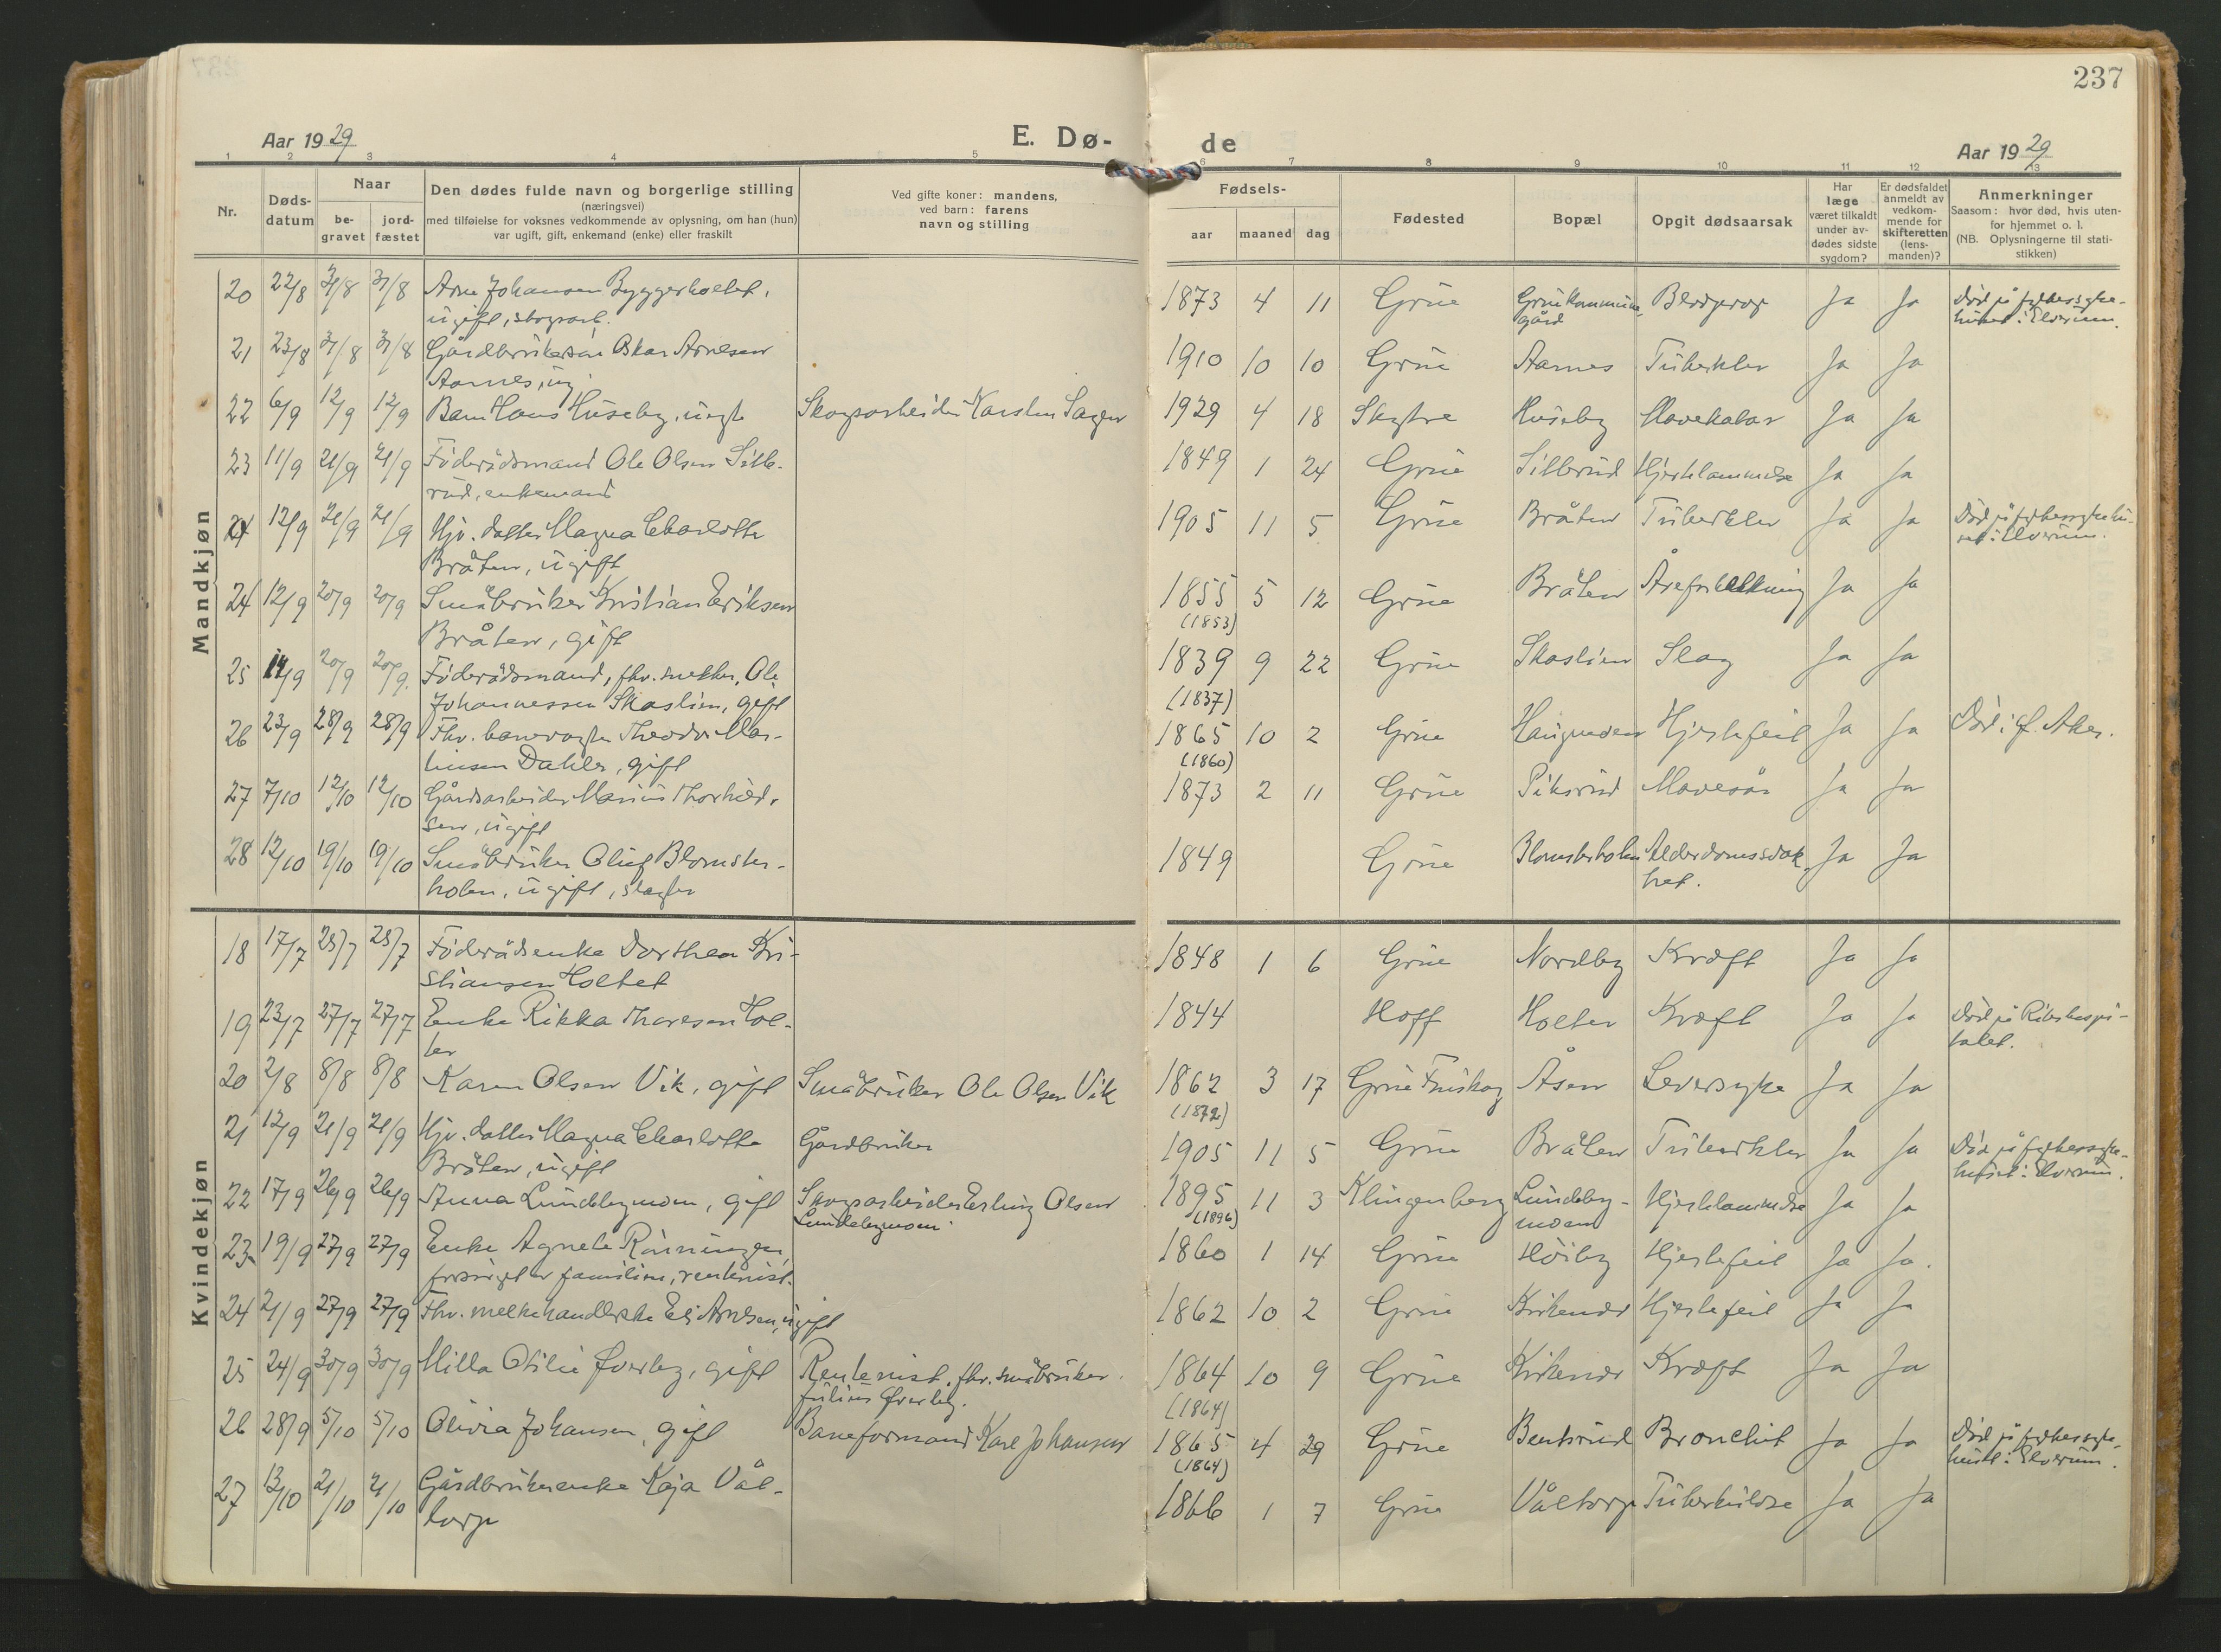 237
Aar 1929
E. Dø-
de
Aar 1929
1 2 3 4 5 6 7 8 9 10 11 12 13
Nr.
Døds-
datum
Naar
be-
gravet
jord-
fæstet
Den dødes fulde navn og borgerlige stilling
(næringsvei)
med tilføielse for voksnes vedkommende av oplysning, om han (hun)
var ugift, gift, enkemand (enke) eller fraskilt
Ved gifte koner: mandens,
ved barn: farens
navn og stilling
Fødsels-
aar maaned dag
Fødested
Bopæl
Opgit dødsaarsak
Har
læge
været tilkaldt
under av-
dødes sidste
sygdom?
Er dødsfaldet
anmeldt av
vedkom-
mende for
skifteretten
(lens-
manden)?
Anmerkninger
Saasom: hvor død, hvis uten-
for hjemmet o. l.
(NB. Oplysningerne til stati-
stikken)
Mandkjøn
20 22/8 31/8 31/8 Arne Johansen Byggerholtet, 1873 4 11 Grue Gruekommune- Ja Ja Død på fylkessyke-
ugift, skogsarb. gård huset i Elverum.
21 23/8 31/8 31/8 Gårdbrukersøn Oskar Arnesen 1910 10 10 Grue Aarnes Tuberkler Ja Ja
Aarnes, ug.
22 6/9 12/9 12/9 Barn Hans Huseby, ungk Skogsarbeider Karsten Sagen 1929 4 18 Huseby Mavekatar Ja Ja
23 11/9 21/9 21/9 Föderådsmand Ole Olsen Sillb- 1849 1 24 Grue Sillerud Hjertelammelse Ja Ja
rud, enkemand
24 12/9 21/9 21/9 Hjv. datter Magna Charlotte 1905 11 5 Grue Bråten Tuberkler Ja Ja Død på fylkessykehu-
Bråten, ugift set i Elverum.
24 12/9 20/9 20/9 Småbruker Kristian Eriksen 1855 5 12 Grue Bråten Åreforkalkning Ja Ja
Bråten, gift (1853)
25 14/9 20/9 20/9. Föderådsmand, fhv. snekker, Ole 1839 9 22 Grue Skaslien Slag Ja Ja
Johannessen Skaslien, gift (1837)
26 23/9 28/9 28/9 Fhv. banevogter Theodor Mar- 1865 10 2 Grue Haugmoen Hjertefeil Ja Ja Død i Aker.
tinsen Dahler, gift (1860)
27 7/10 12/10 12/10 Gårdsarbeider Marius Thorkild- 1873 2 11 Grue Piksrud Mavesår Ja Ja
sen, ugift
28 12/10 19/10 19/10 Småbruker Oluf Blomster- 1849 Grue Blomsterholen Alderdomssvak- Ja Ja
holen, ugift, slagter het.
Kvindekjøn
18 17/7 25/7 25/7 Föderådsenke Dorthea Kri- 1848 1 6 Grue Nordby Kræft Ja Ja
stiansen Holtet
19 23/7 27/7 27/7 Enke Rikka Thoresen Hol- 1844 Hoff Holter Kræft Ja Ja Død på Rikshospi-
ter talet.
20 2/8 8/8 8/8 Karen Olsen Vik, gift Småbruker Ole Olsen Vik 1862 3 17 Grue Finskog Åsen Leversyke Ja Ja
(1872)
21 12/9 21/9 21/9 Hjv. datter Magna Charlotte Gårdbruker 1905 11 5 Grue Bråten Tuberkler Ja Ja Død på fylkessyke-
Bråten, ugift huset i Elverum.
22 17/9 26/9 26/9 Anna Lundebymoen, gift Skogsarbeider Erling Olsen 1895 11 3 Klingenberg Lundeby- Hjertelammelse Ja Ja
Lundebymoen (1896) moen
23 19/9 27/9 27/9 Enke Agnete Rönningen, 1860 1 14 Grue Höiby Hjertefeil Ja Ja.
forsörget av familien, rentenist.
24 21/9 27/9 27/9 Fhv. melkehandlerske Eli Arnesen, ugift 1862 10 2 Grue Kirkenær Hjertefeil Ja Ja
25 24/9 30/9 30/9 Milla Otilie Øverby, gift Rentenist, fhv. småbruker 1864 10 9 Grue Kirkenær Kræft Ja Ja
Julius Øverby. (1864)
26 28/9 5/10 5/10 Olivia Johansen, gift Baneformand Karl Johansen 1865 4 29 Grue Bentsrud Bronchit Ja Ja Død på fylkessyke-
(1864) huset i Elverum.
27 13/10 21/10 21/10 Gårdbrukerenke Kaja Vål- 1866 1 7 Grue Våltorp Tuberkulose Ja Ja
torp